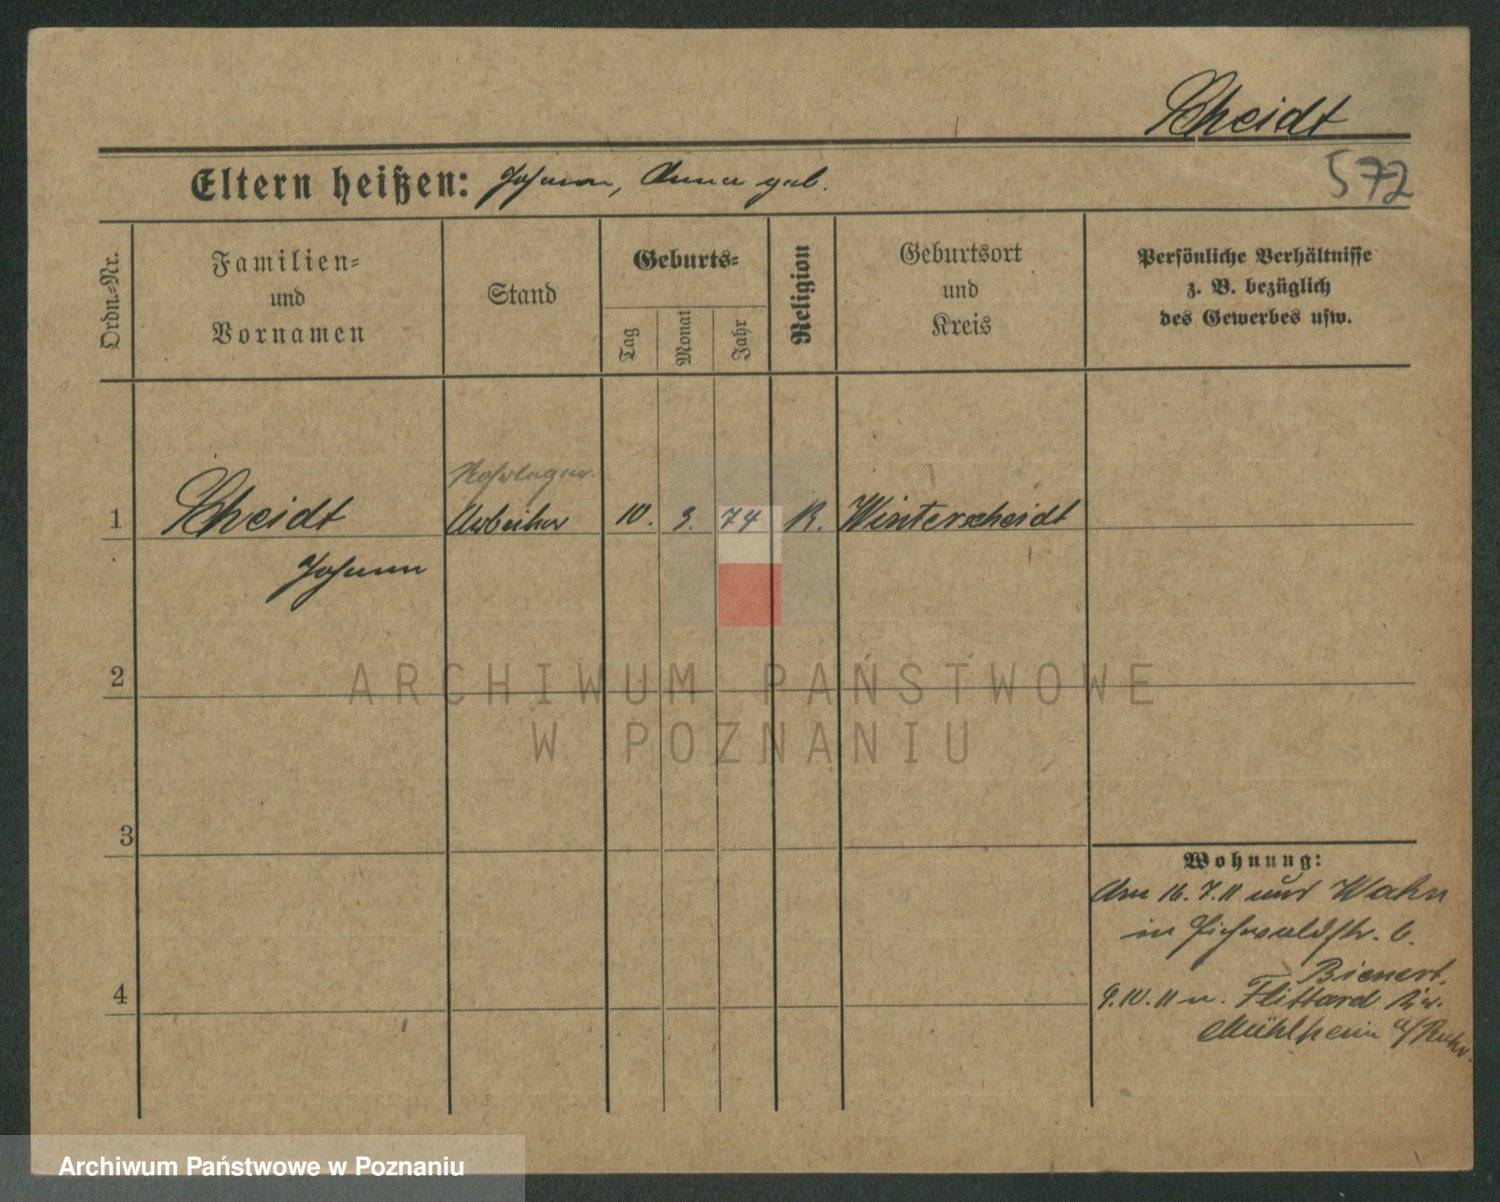 Scheidt
572
Eltern heißen: Johann, Anna geb.
Ordn.-Nr.
Familien-
und
Vornamen
Stand
Geburts-
Tag
Monat
Jahr
Religion
Geburtsort
und
Kreis
Persönliche Verhältnisse
z. B. bezüglich
des Gewerbes usw.
Rohrleger
1 Scheidt Arbeiter 10. 3. 74 K. Winterscheidt
Johann
2
ARCHIWUM PAŃSTWOWE
W POZNANIU
3
Wohnung:
Am 16.7.11 und Wahn
in Eichwaldstr. 6.
Bienert.
9.10.11 n. Flittard Kr.
4
Mühlheim a/Ruhr.
Archiwum Państwowe w Poznaniu